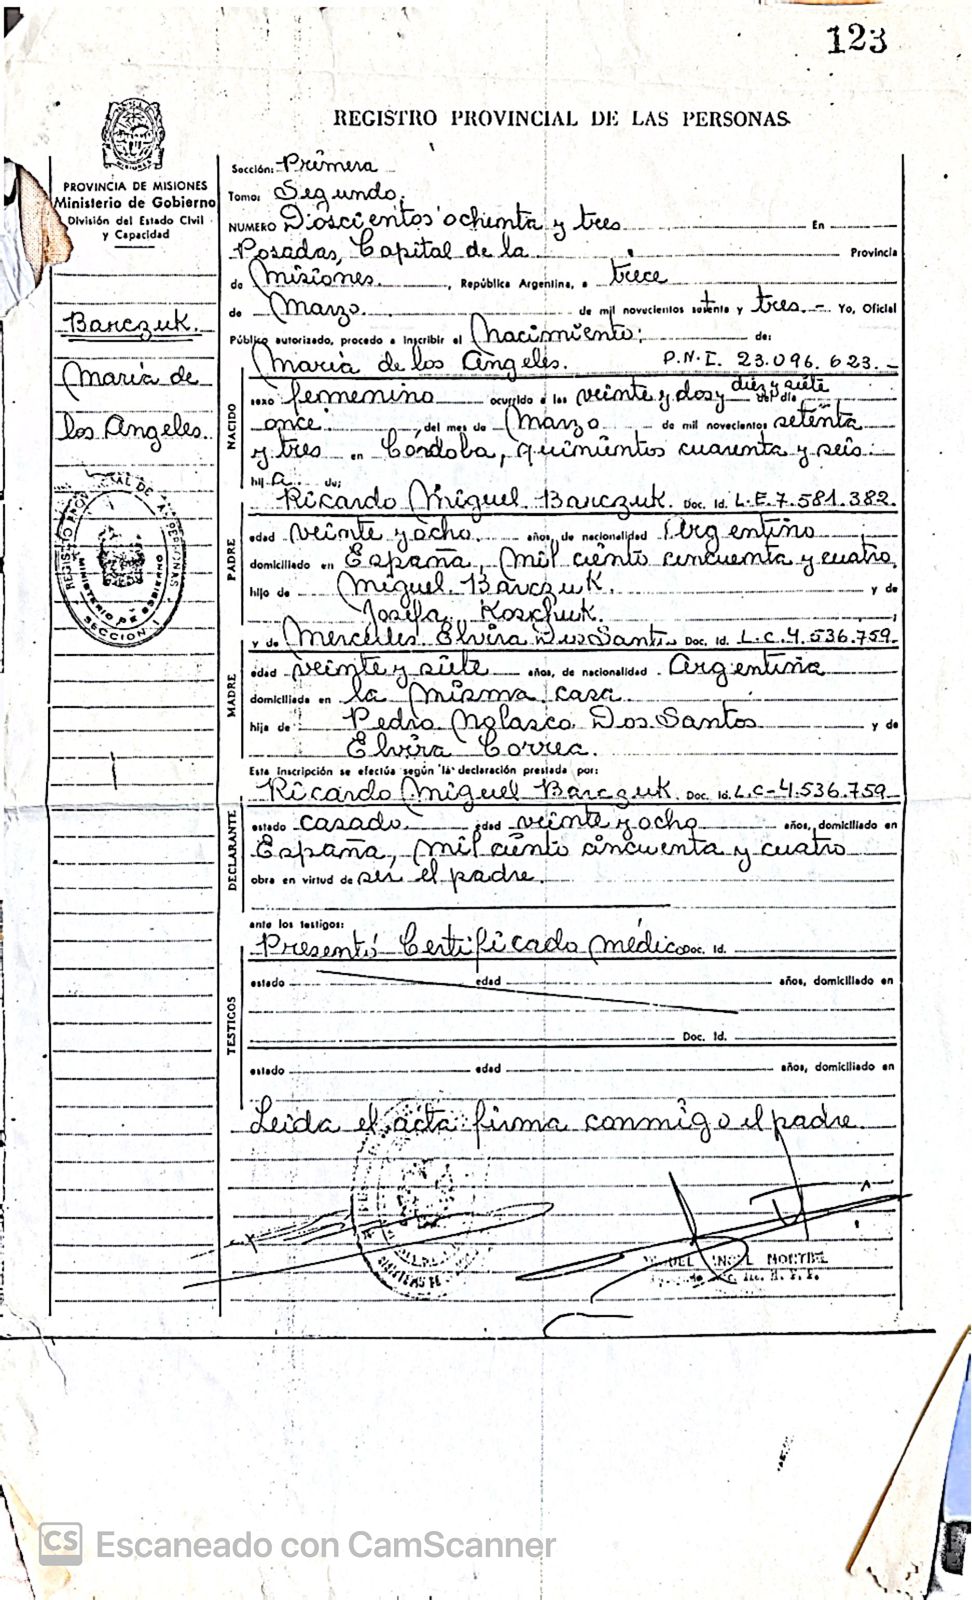 123
REGISTRO PROVINCIAL DE LAS PERSONAS
PROVINCIA DE MISIONES
Ministerio de Gobierno
División del Estado Civil
y Capacidad
Barczuk.
María de
los Angeles.
REGISTRO PROVINCIAL DE LAS PERSONAS
MINISTERIO DE GOBIERNO
SECCION 1
Sección: Primera
Tomo: Segundo.
NUMERO Doscientos ochenta y tres En
Posadas, Capital de la Provincia
de Misiones. , República Argentina, a trece
de Marzo. de mil novecientos setenta y tres.- Yo, Oficial
Público autorizado, procedo a inscribir el Nacimiento: de:
María de los Angeles. D.N.I. 23.096.623.-
NACIDO
sexo femenino ocurrido a las veinte y dos y diez y siete del día
once. del mes de Marzo de mil novecientos setenta
y tres en Córdoba, quinientos cuarenta y seis.
hij a. de:
Ricardo Miguel Barczuk. Doc. Id. L.E.7.581.382.
PADRE
edad veinte y ocho. años, de nacionalidad Argentino
domiciliado en España, mil ciento cincuenta y cuatro,
hijo de Miguel Barczuk. y de
Josefa Koschuk.
y de Mercedes Elvira Dos Santos Doc. Id. L.C.4.536.759.
MADRE
edad veinte y siete años, de nacionalidad Argentina
domiciliada en la misma casa.
hija de Pedro Nolasco Dos Santos y de
Elvira Correa.
Esta inscripción se efectúa según la declaración prestada por:
Ricardo Miguel Barczuk. Doc. Id. L.C-4.536.759
DECLARANTE
estado casado. edad veinte y ocho años, domiciliado en
España, mil ciento cincuenta y cuatro
obra en virtud de ser el padre.
ante los testigos:
Presentó Certificado médico Doc. Id.
TESTIGOS
estado edad años, domiciliado en
Doc. Id.
estado edad años, domiciliado en
Leida el acta firma conmigo el padre.
CS Escaneado con CamScanner